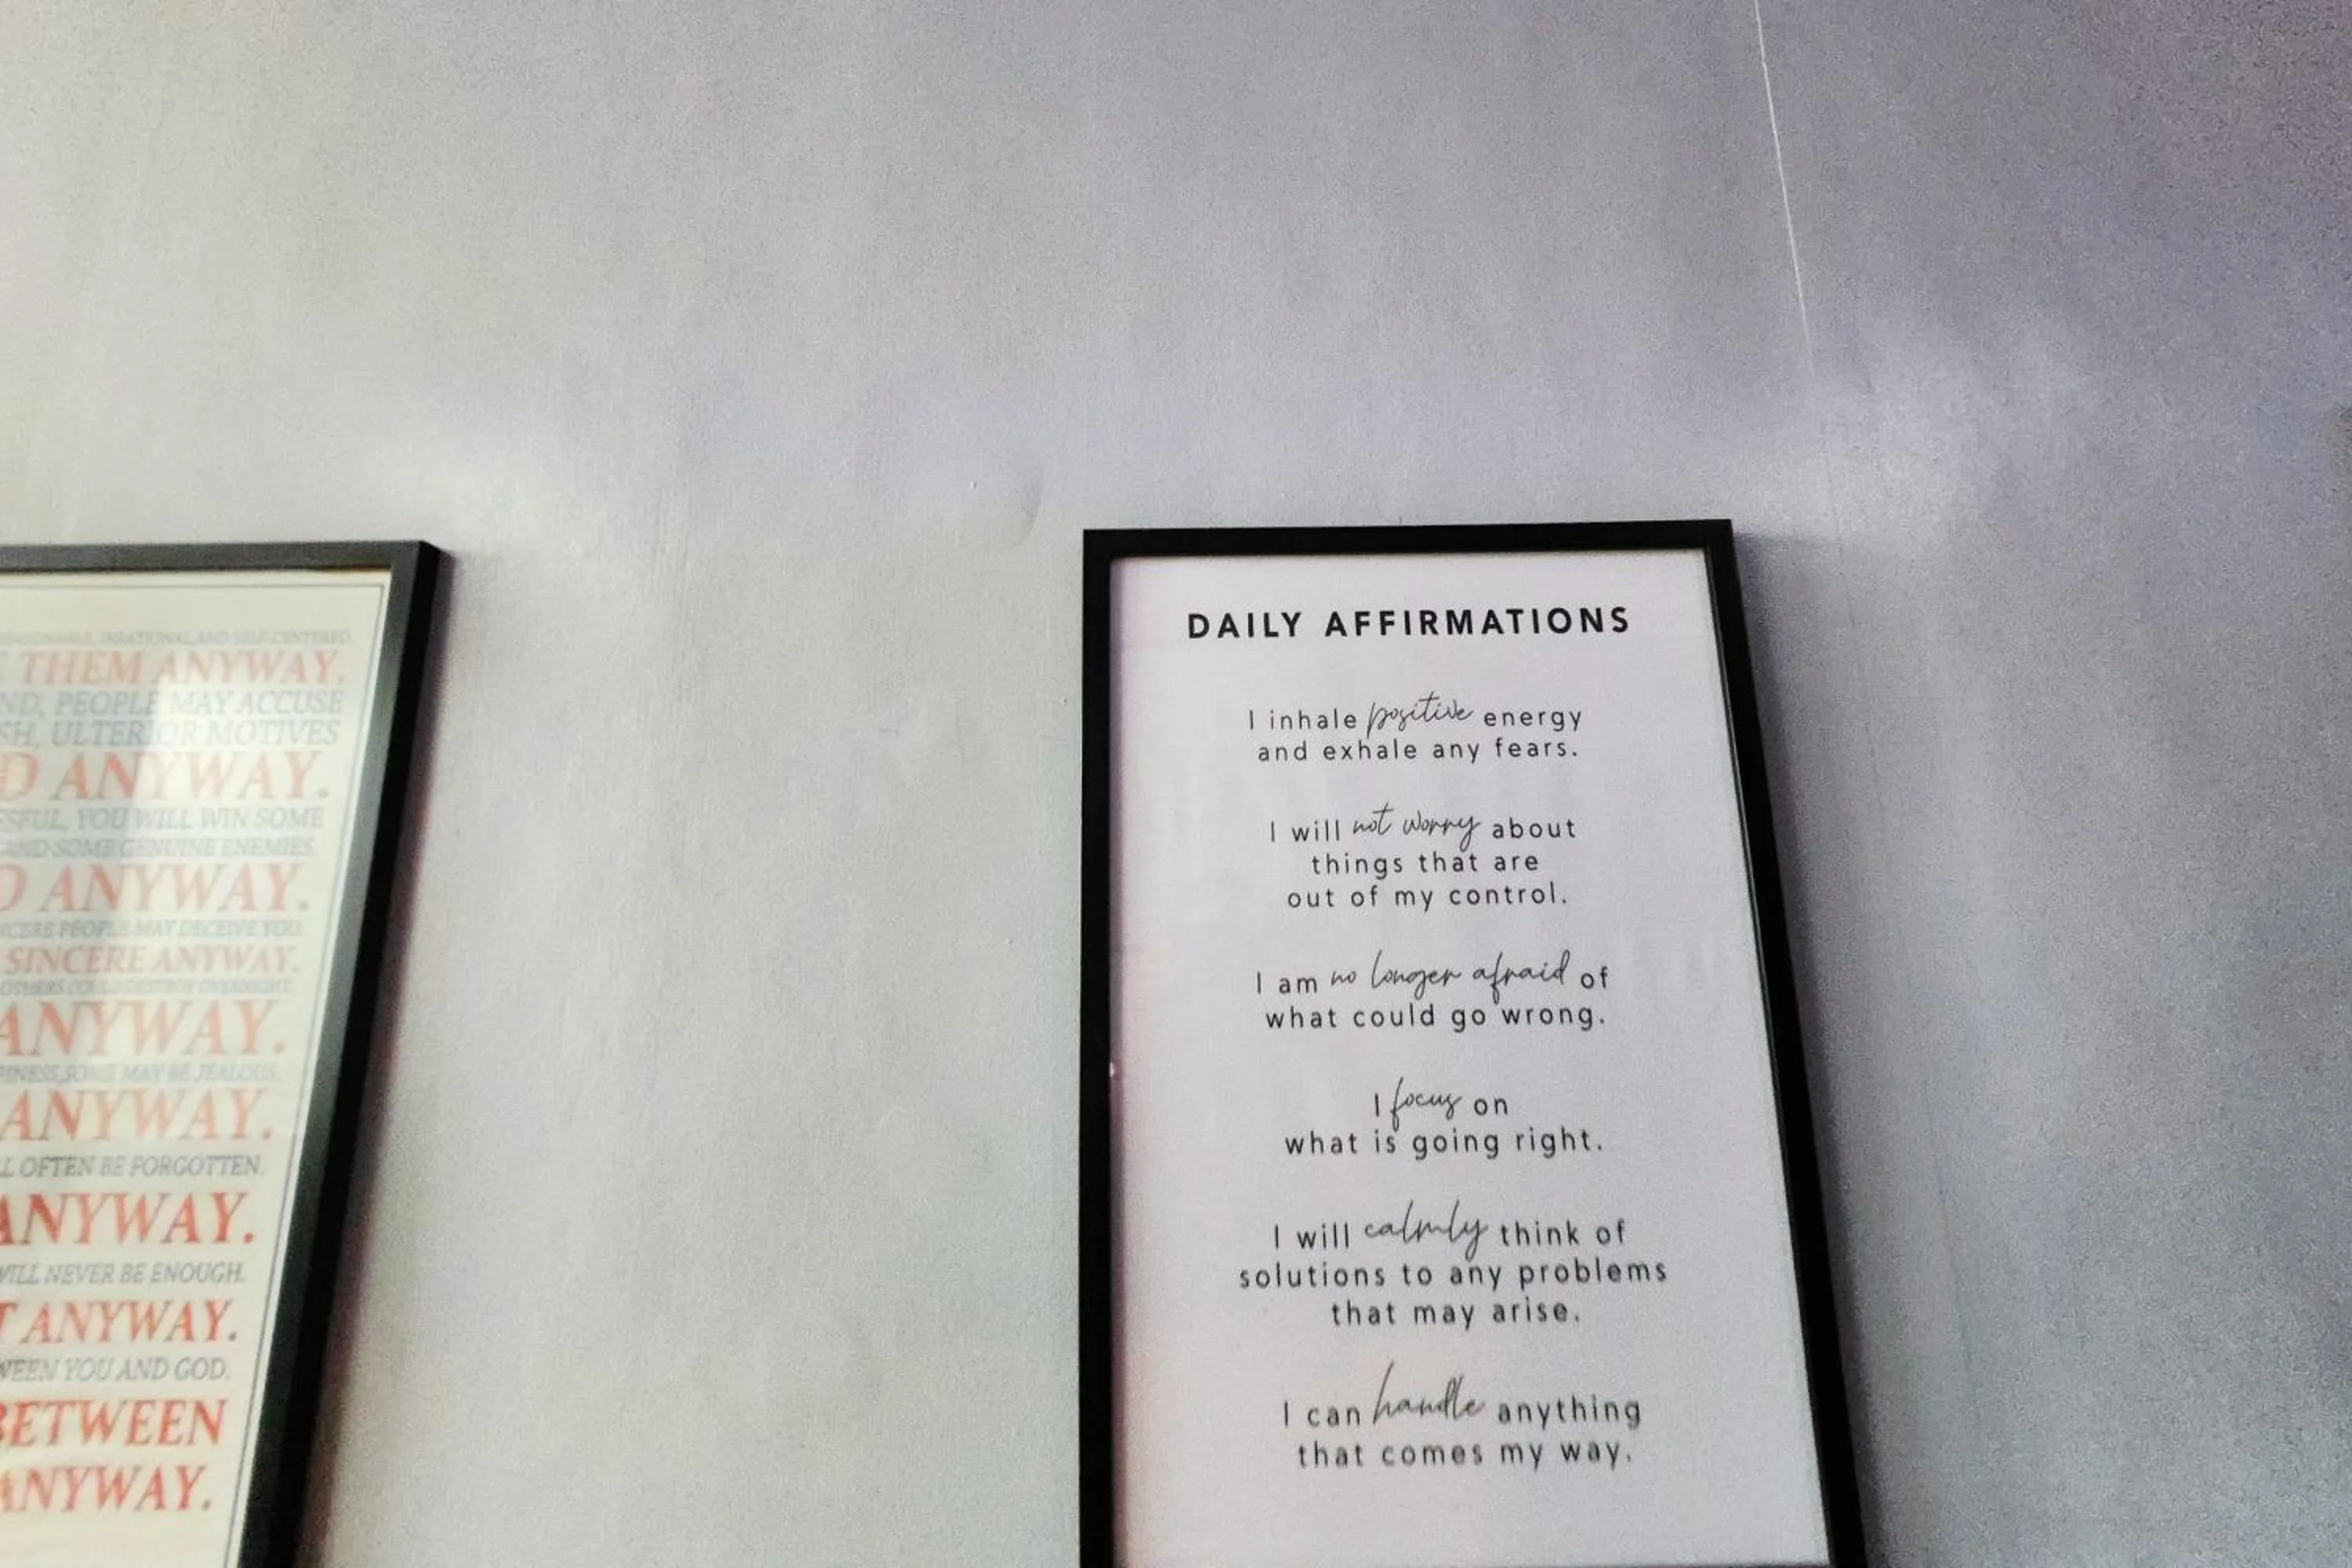 THEM ANYWAY.
PEOPLE MAY ACCUSE
ULTERIOR MOTIVES
ANYWAY.
YOU WILL WIN SOME
AND SOME GENUINE ENEMIES.
ANYWAY.
PEOPLE MAY DECEIVE YOU.
SINCERE ANYWAY.
OTHERS COULD DESTROY OVERNIGHT.
ANYWAY.
SOME MAY BE JEALOUS.
ANYWAY.
OFTEN BE FORGOTTEN.
ANYWAY.
WILL NEVER BE ENOUGH.
ANYWAY.
YOU AND GOD.
BETWEEN
ANYWAY.
DAILY AFFIRMATIONS
I inhale positive energy
and exhale any fears.
I will not worry about
things that are
out of my control.
I am no longer afraid of
what could go wrong.
I focus on
what is going right.
I will calmly think of
solutions to any problems
that may arise.
I can handle anything
that comes my way.